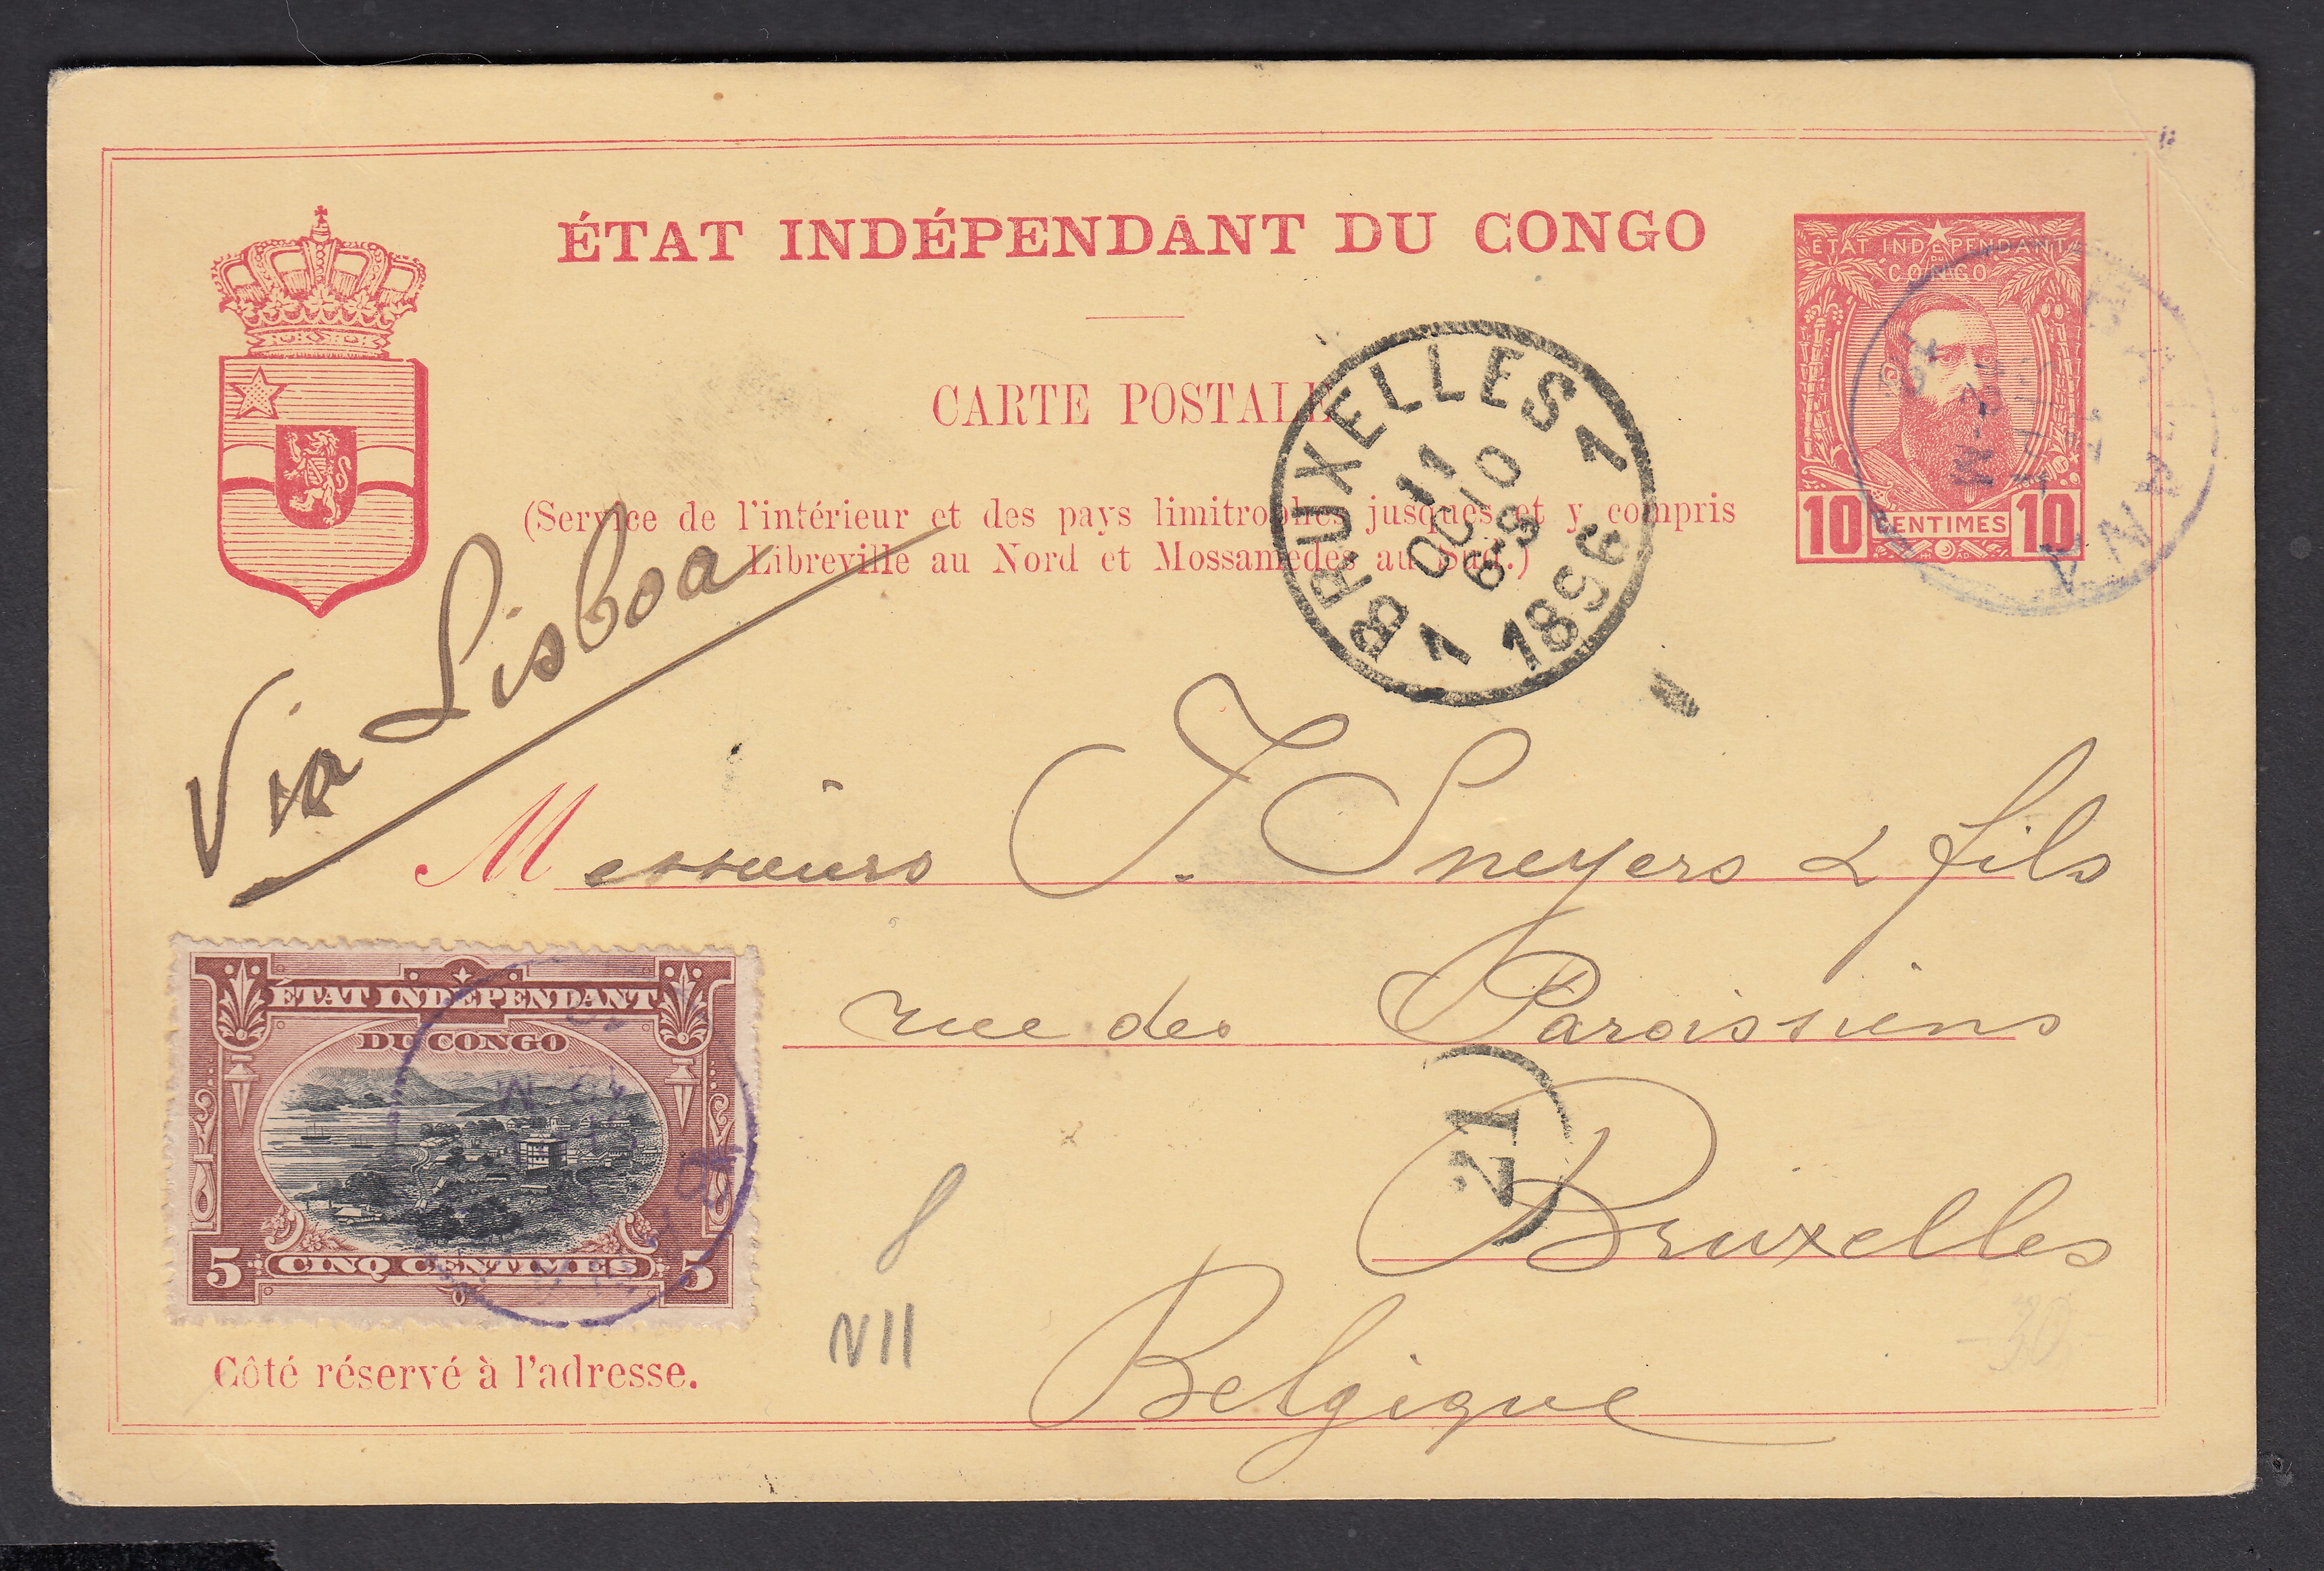 ÉTAT INDÉPENDANT DU CONGO
CARTE POSTALE
(Service de l'intérieur et des pays limitrophes jusques et y compris
Libreville au Nord et Mossamedes au Sud.)
ÉTAT INDÉPENDANT
DU
CONGO
10 CENTIMES 10
BRUXELLES 1
11
OCTO
6-9
1896
1
Via Lisboa
Messieurs J. Sneyers & fils
rue des Paroissiens
Bruxelles
Belgique
21
ÉTAT INDÉPENDANT
DU CONGO
5 CINQ CENTIMES 5
Côté réservé à l'adresse.
N11
-30-